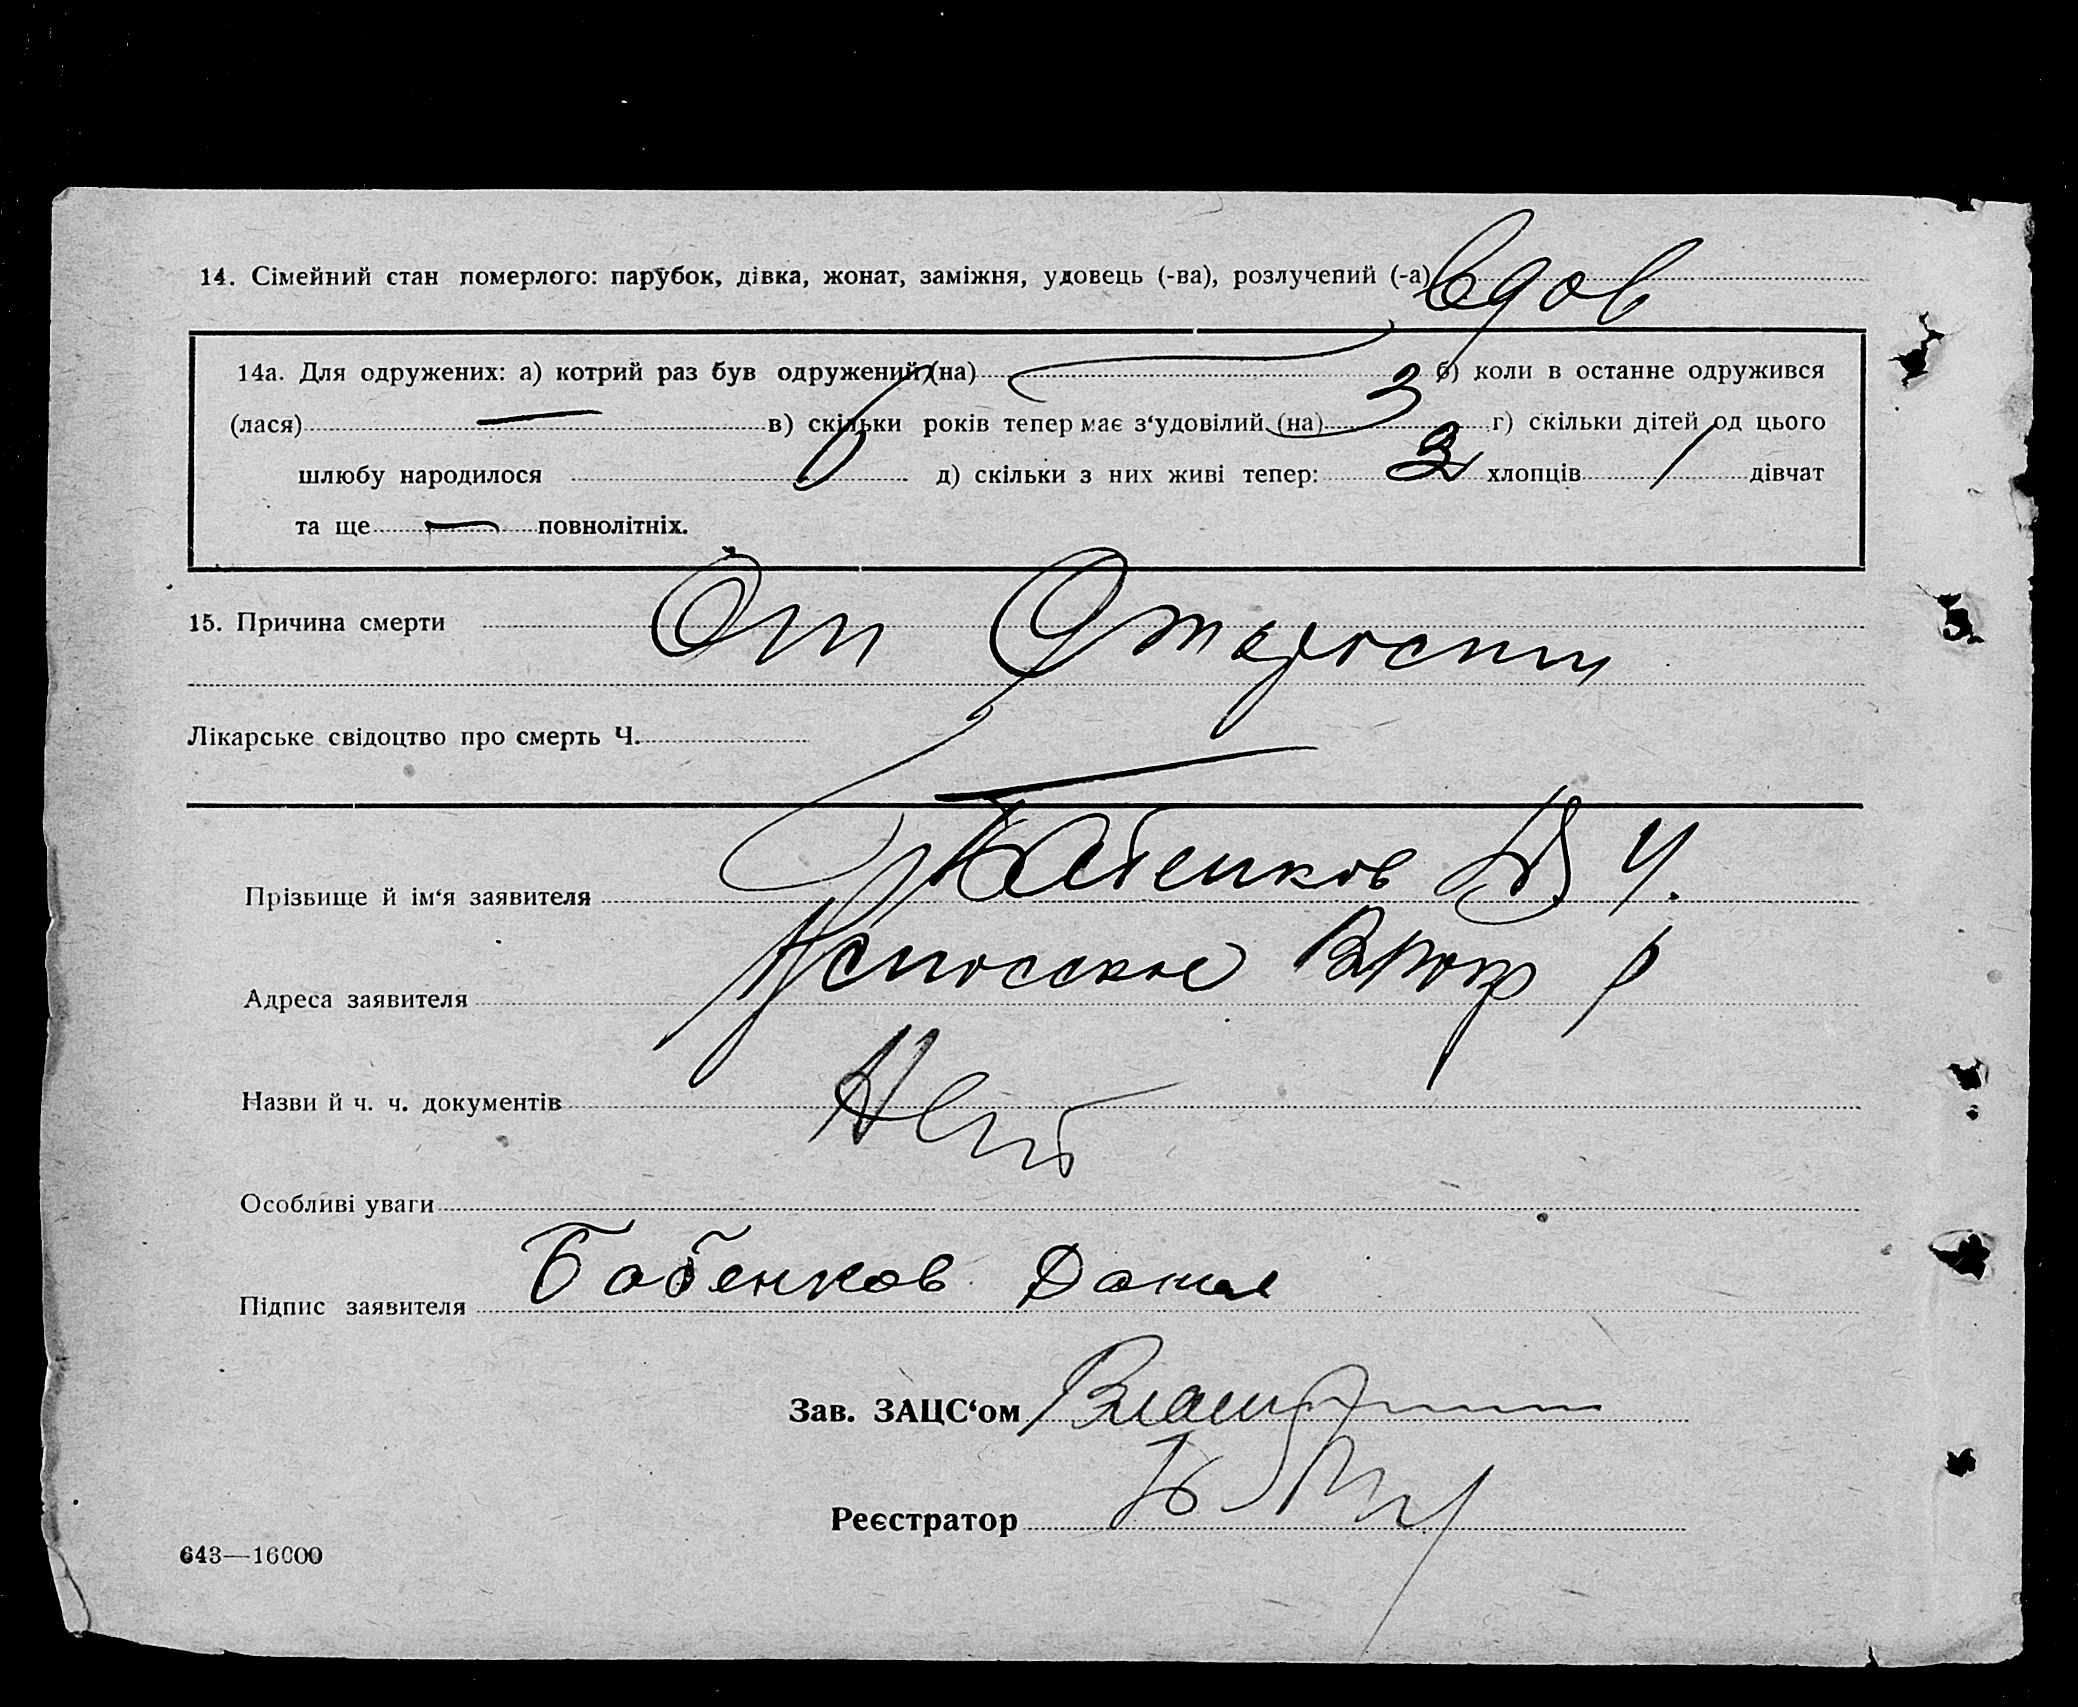 14. Сімейний стан померлого: парубок, дівка, жонат, заміжня, удовець (-ва), розлучений (-а) вдов
14а. Для одружених: а) котрий раз був одружений (на) б) коли в останне одружився
(лася) — в) скільки років тепер має з‘удовілий (на) 3 г) скільки дітей од цього
шлюбу народилося 6 д) скільки з них живі тепер: 3 хлопців 1 дівчат
та ще — повнолітніх.
15. Причина смерти От Старости
Лікарське свідоцтво про смерть Ч. —
Прізвище й ім‘я заявителя Бабенков Д И.
Адреса заявителя
Назви й ч. ч. документів Нет
Особливі уваги
Підпис заявителя Бабенков Данил
Зав. ЗАЦС‘ом
Реєстратор
643—16000